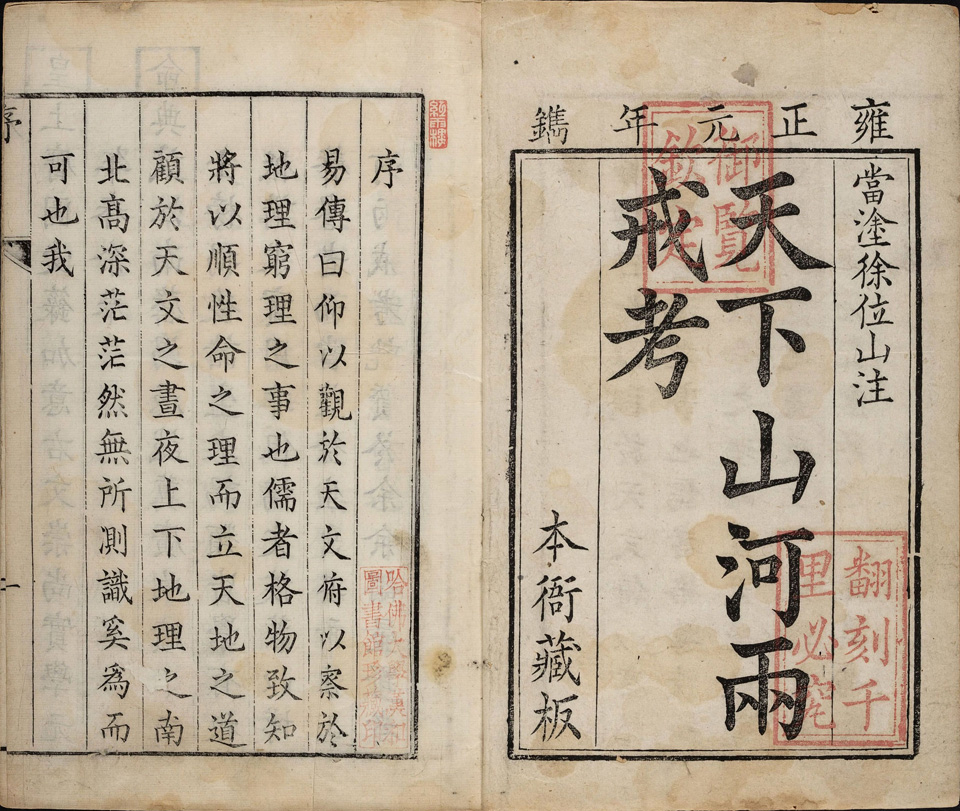 雍正元年鐫
當塗徐位山注
天下山河兩
戒考
本衙藏板
御覽
欽定
翻刻千
里必究
序
易傳曰仰以觀於天文府以察於
地理窮理之事也儒者格物致知
將以順性命之理而立天地之道
顧於天文之晝夜上下地理之南
北髙深茫茫然無所測識奚爲而
可也我
哈佛大學漢和
圖書館珍藏印
序
一